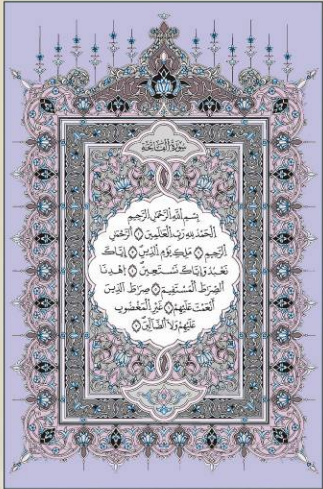 سورة الفاتحة
بِسْمِ ٱللَّهِ ٱلرَّحْمَٰنِ ٱلرَّحِيمِ
ٱلْحَمْدُ لِلَّهِ رَبِّ ٱلْعَٰلَمِينَ ۝ ٱلرَّحْمَٰنِ
ٱلرَّحِيمِ ۝ مَلِكِ يَوْمِ ٱلدِّينِ ۝ إِيَّاكَ
نَعْبُدُ وَإِيَّاكَ نَسْتَعِينُ ۝ ٱهْدِنَا
ٱلصِّرَٰطَ ٱلْمُسْتَقِيمَ ۝ صِرَٰطَ ٱلَّذِينَ
أَنْعَمْتَ عَلَيْهِمْ ۝ غَيْرِ ٱلْمَغْضُوبِ
عَلَيْهِمْ وَلَا ٱلضَّآلِّينَ ۝